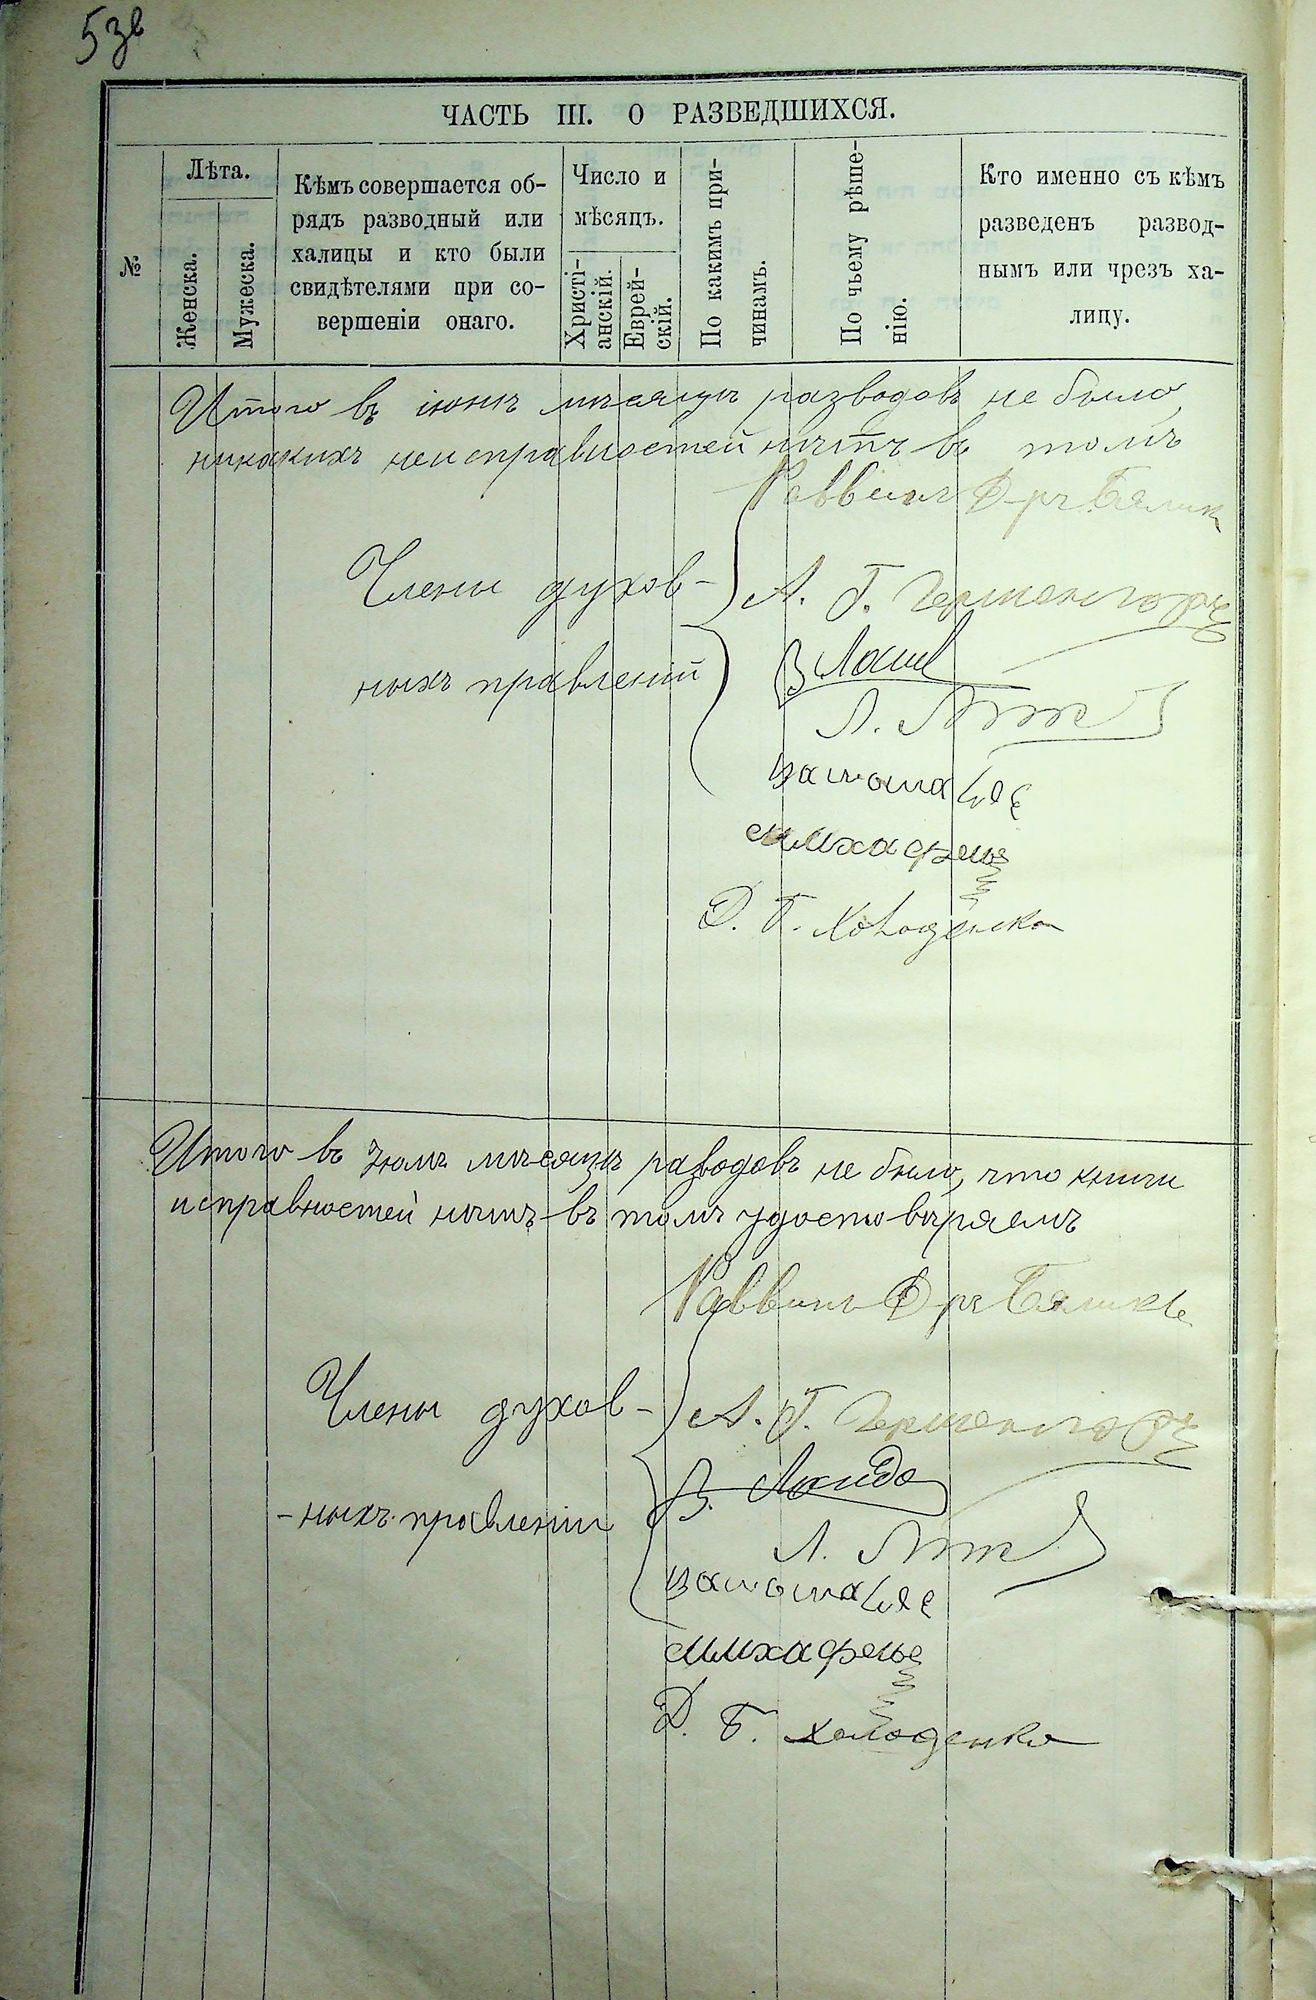 53в
ЧАСТЬ III. О РАЗВЕДШИХСЯ.
№
Лѣта.
Женска.
Мужеска.
Кѣмъ совершается об-
рядъ разводный или
халицы и кто были
свидѣтелями при со-
вершеніи онаго.
Число и
мѣсяцъ.
Христі-
анскій.
Еврей-
скій.
По какимъ при-
чинамъ.
По чьему рѣше-
нію.
Кто именно съ кѣмъ
разведенъ развод-
нымъ или чрезъ ха-
лицу.
Итого въ іюнѣ мѣсяцѣ разводовъ не было,
никакихъ неисправностей нѣтъ въ томъ
Раввинъ Д-ръ Бяликъ
Члены духов-
ныхъ правленій
А. Г.
В.
Л.
Д. Б. Холоденко
Итого въ Іюлѣ мѣсяцѣ разводовъ не было, что книги
исправностей нѣтъ въ томъ удостовѣряемъ
Раввинъ Д-ръ Бяликъ
Члены духов-
-ныхъ правленіи
А. Г.
В. Ландо
Л.
Д. Б. Холоденко